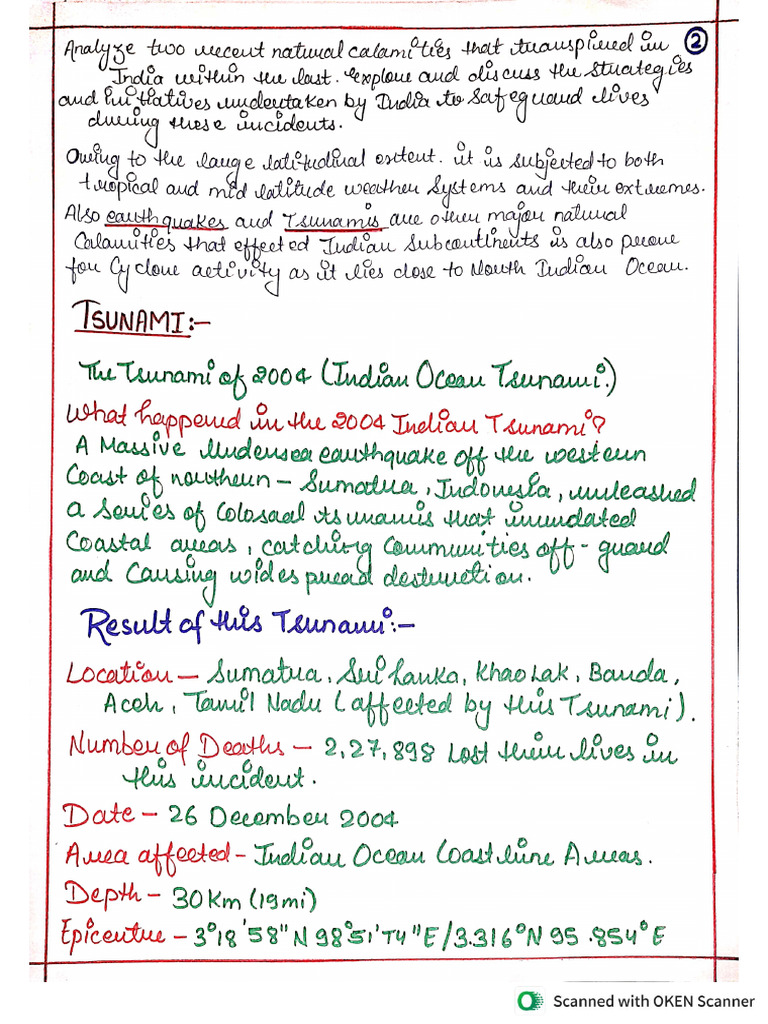 ②
Analyze two recent natural calamities that transpired in
India within the last. explore and discuss the strategies
and Initiatives undertaken by India to safeguard lives
during these incidents.
Owing to the large latitudinal extent. it is subjected to both
tropical and mid latitude weather systems and their extremes.
Also earthquakes and Tsunamis are other major natural
Calamities that effected Indian Subcontinents is also prone
for Cyclone activity as it lies close to North Indian Ocean.
TSUNAMI:-
The Tsunami of 2004 (Indian Ocean Tsunami.)
What happened in the 2004 Indian Tsunami?
A Massive Undersea earthquake off the western
Coast of northern - Sumatra, Indonesia, unleashed
a series of Colosaal tsunamis that inundated
Coastal areas, catching Communities off-guard
and Causing widespread destruction.
Result of this Tsunami:-
Location - Sumatra, Sri Lanka, Khao Lak, Banda,
Aceh, Tamil Nadu (affected by this Tsunami).
Number of Deaths - 2,27,898 Lost their lives in
this incident.
Date - 26 December 2004
Area affected - Indian Ocean Coastline Areas.
Depth - 30 Km (19mi)
Epicentre - 3°18'58"N 98°51'T4"E/3.316°N 95.854°E
Scanned with OKEN Scanner